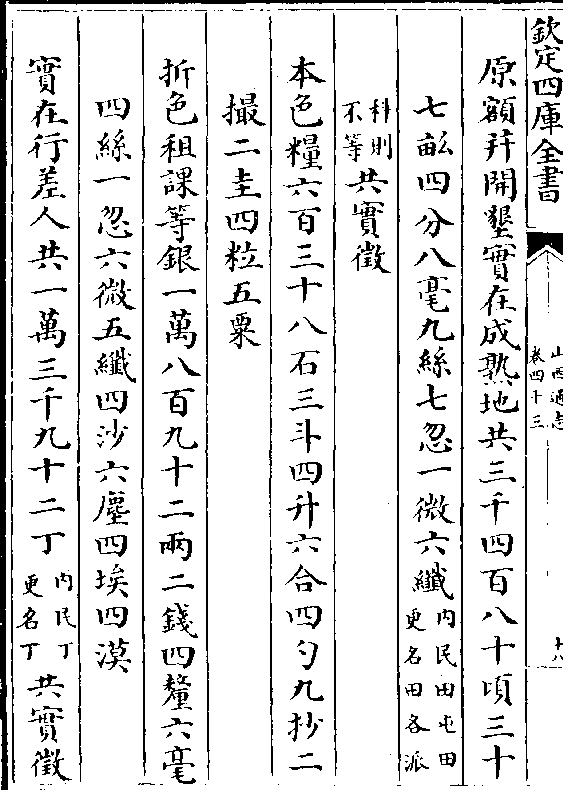 欽定四庫全書
山西通志
卷四十三
十八
原額并開墾實在成熟地共三千四百八十頃三十
七畝四分八毫九絲七忽一微六纖內民田屯田更名田各派
科則不等共實徵
本色糧六百三十八石三斗四升六合四勺九抄二
撮二圭四粒五粟
折色租課等銀一萬八百九十二兩二錢四釐六毫
四絲一忽六微五纖四沙六塵四埃四漠
實在行差人共一萬三千九十二丁內民丁更名丁共實徵